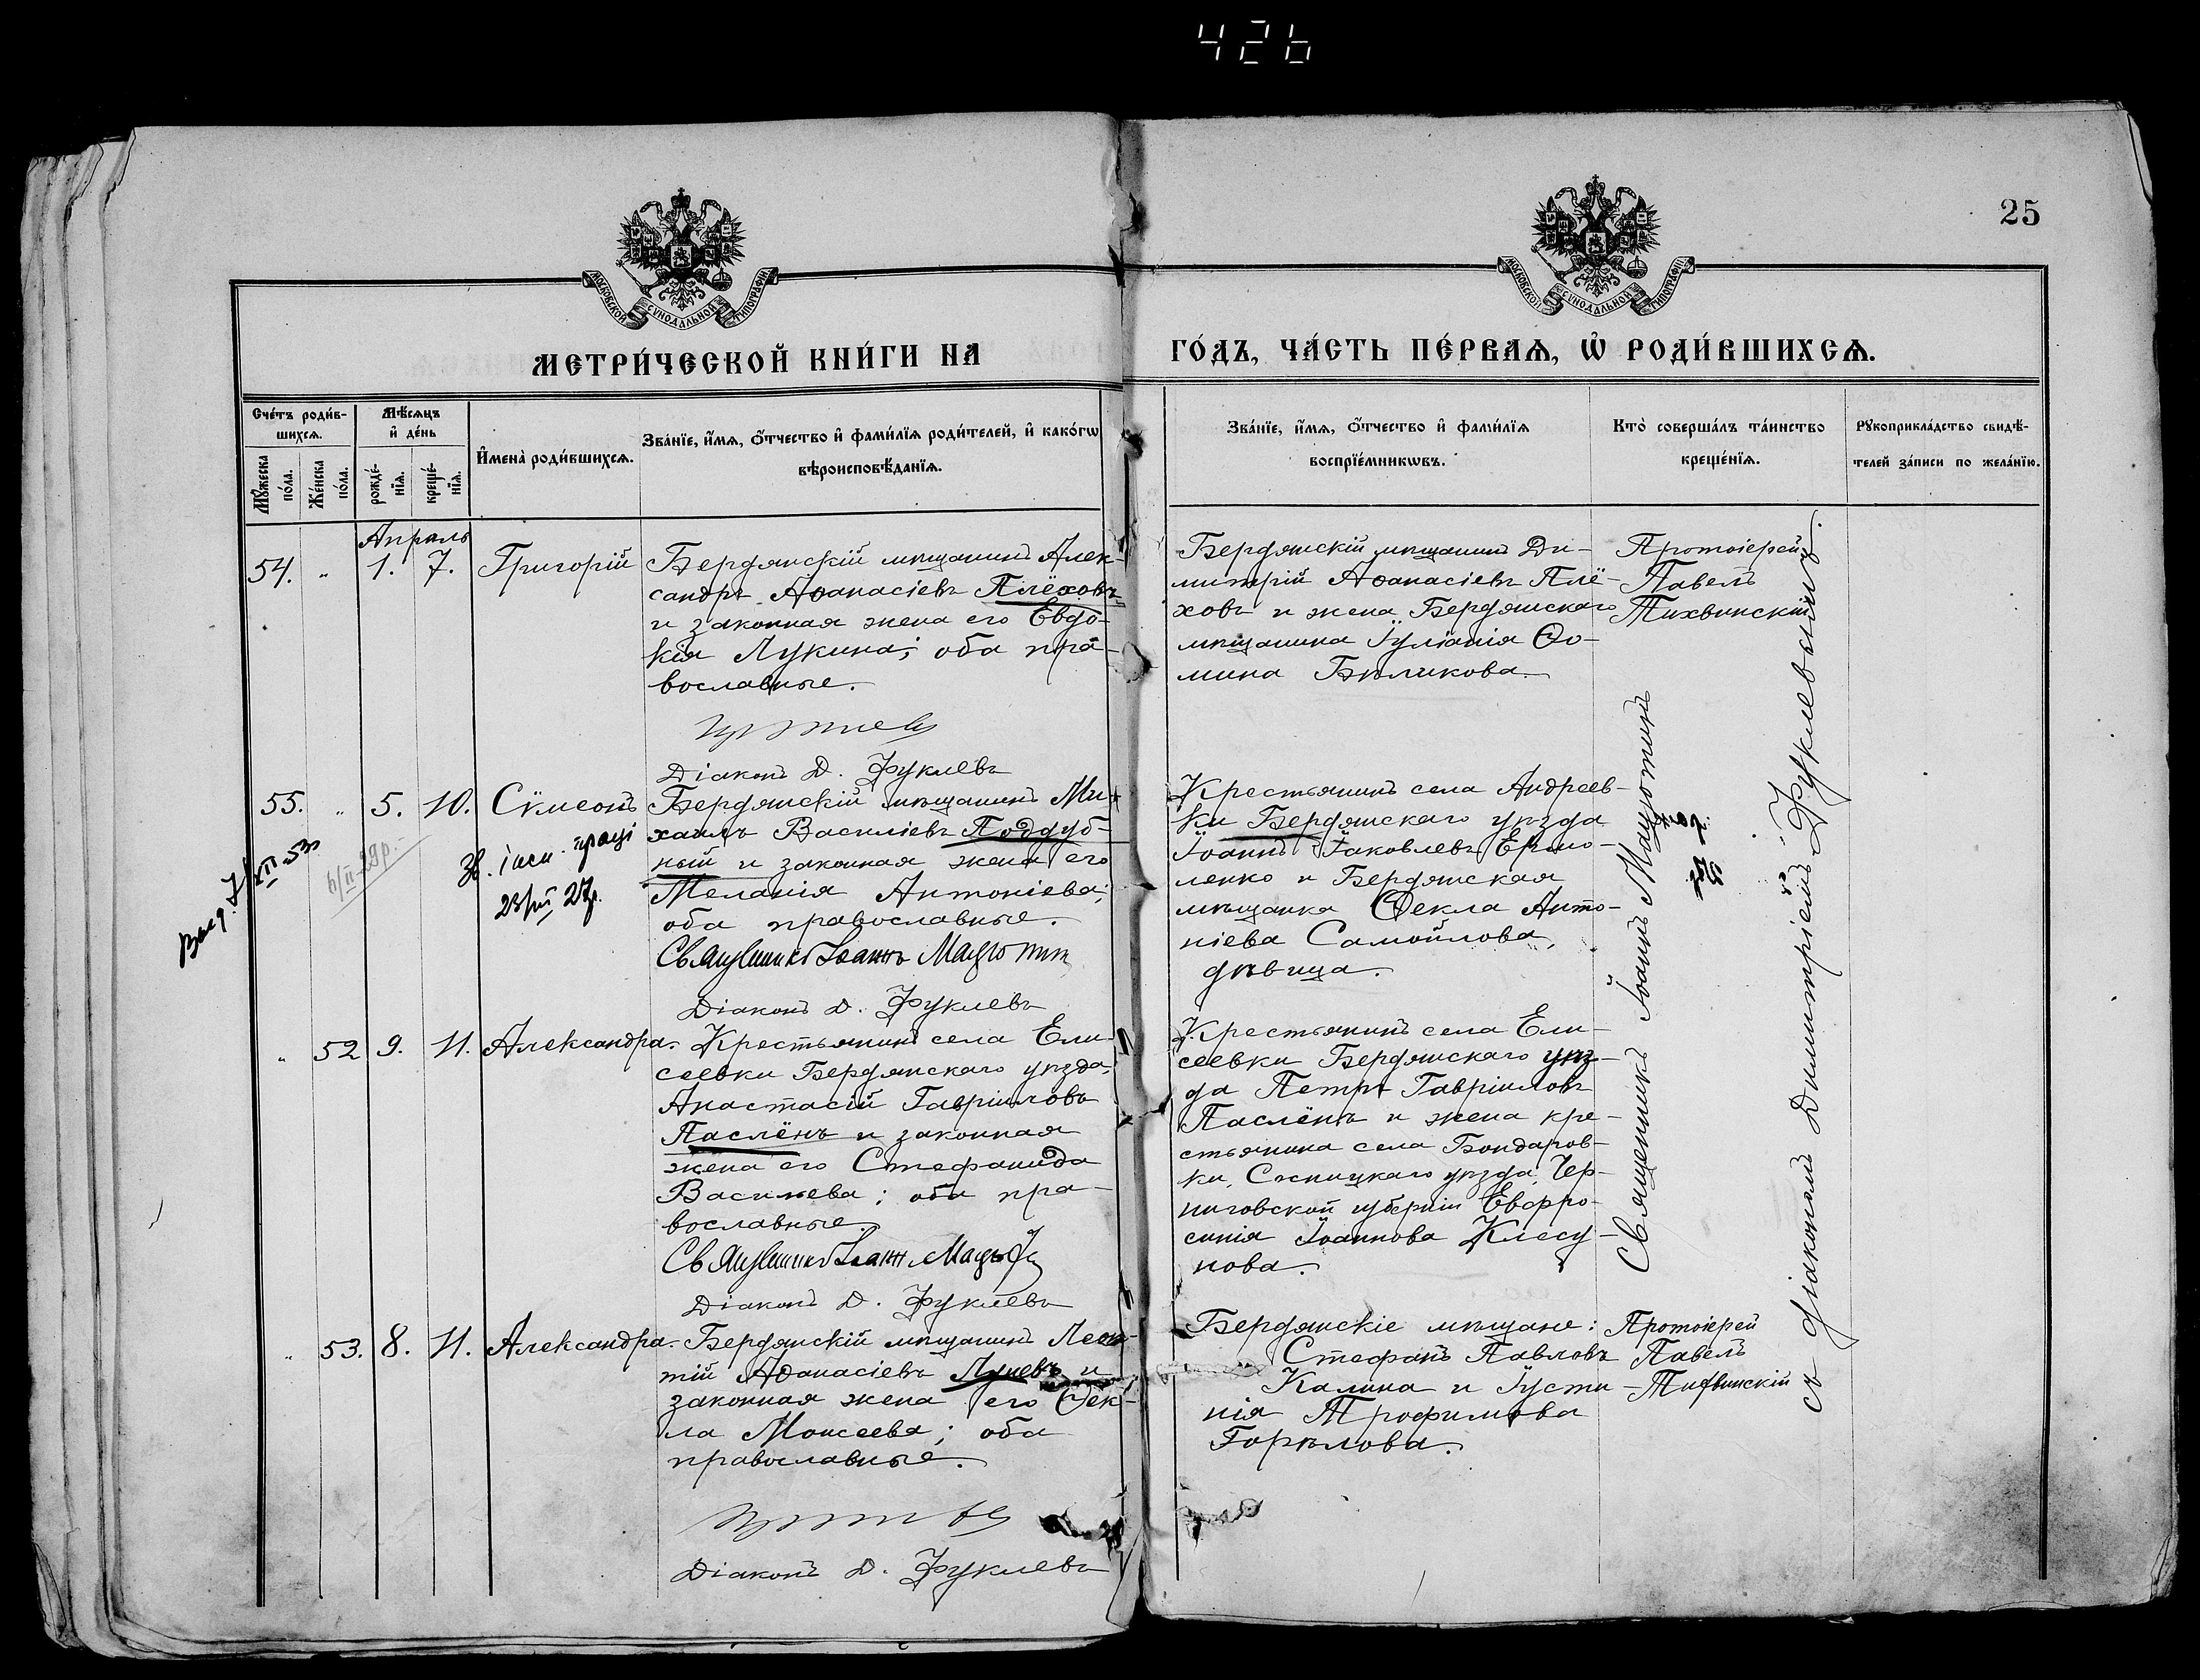 426
25
МОСКОВСКОЙ СУНОДАЛЬНОЙ ТИПОГРАФІИ
МОСКОВСКОЙ СУНОДАЛЬНОЙ ТИПОГРАФІИ
МЕТРИ́ЧЕСКОЙ КНИ́ГИ НА
ГО́ДЪ, ЧА́СТЬ ПЕ́РВАѦ, Ѿ РОДИ́ВШИХСѦ.
Сче́тъ роди́в-
шихсѧ.
Мꙋ́жеска по́ла.
Же́нска по́ла.
Мѣ́сѧцъ
и҆ де́нь
рожде́-
нїѧ.
креще́-
нїѧ.
И҆мена̀ роди́вшихсѧ.
Зва́нїе, и҆́мѧ, ѻ҆́тчество и҆ фами́лїѧ роди́телей, и҆ како́гѡ
вѣроисповѣ́данїѧ.
Зва́нїе, и҆́мѧ, ѻ҆́тчество и҆ фами́лїѧ
воспрїе́мникѡвъ.
Кто̀ соверша́лъ та́инство
креще́нїѧ.
Рꙋкоприкла́дство свидѣ́-
телей за́писи по жела́нїю.
Апрѣль
54. „ 1. 7. Григорій
Бердянскій мѣщанинъ Алек-
сандръ Аѳанасіевъ Плёховъ
и законная жена его Евдо-
кія Лукина; оба пра-
вославные.
Діаконъ Д. Фуклевъ
Бердянскій мѣщанинъ Ди-
митрій Аѳанасіевъ Плё-
ховъ и жена Бердянскаго
мѣщанина Іуліанія Ѳо-
мина Бѣликова.
Протоіерей
Павелъ
Тихвинскій
55. „ 5. 10. Сѵмеонъ
23/VII 27р.
6/II-28р.
Бердянскій мѣщанинъ Ми-
хаилъ Василіевъ Поддуб-
ный и законная жена его
Меланія Антоніева;
оба православные.
Священникъ Іоаннъ Мацютинъ
Діаконъ Д. Фуклевъ
Крестьянинъ села Андреев-
ки Бердянскаго уѣзда
Іоаннъ Іаковлевъ Ермо-
ленко и Бердянская
мѣщанка Ѳекла Анто-
ніева Самойлова,
дѣвица.
Священникъ Іоаннъ Мацютинъ
съ діакономъ Димитріемъ Фуклевымъ.
„ 52 9. 11. Александра.
Крестьянинъ села Ели-
сеевки Бердянскаго уѣзда,
Анастасій Гавріиловъ
Паслёнъ и законная
жена его Стефанида
Василіева; оба пра-
вославные.
Священникъ Іоаннъ
Діаконъ Д. Фуклевъ
Крестьянинъ села Ели-
сеевки Бердянскаго уѣз-
да Петръ Гавріиловъ
Паслёнъ и жена кре-
стьянина села Бондаров-
ки, Сосницкаго уѣзда, Чер-
ниговской губерніи Евфро-
синія Іоаннова Клесу-
нова.
„ 53. 8. 11. Александра.
Бердянскій мѣщанинъ Леон-
тій Аѳанасіевъ Луневъ и
законная жена его Ѳек-
ла Моисеева; оба
православные.
Діаконъ Д. Фуклевъ
Бердянскіе мѣщане:
Стефанъ Павловъ
Калина и Іусти-
нія Трофимова
Горѣлова.
Протоіерей
Павелъ
Тихвинскій